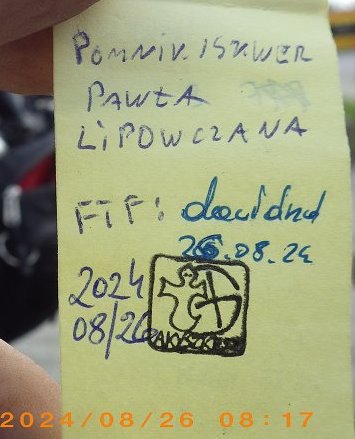 POMNIK ISKWER
PAWŁA
LIPOWCZANA
FTF: davidnd
26.08.24
2024
08/26
2024/08/26 08:17